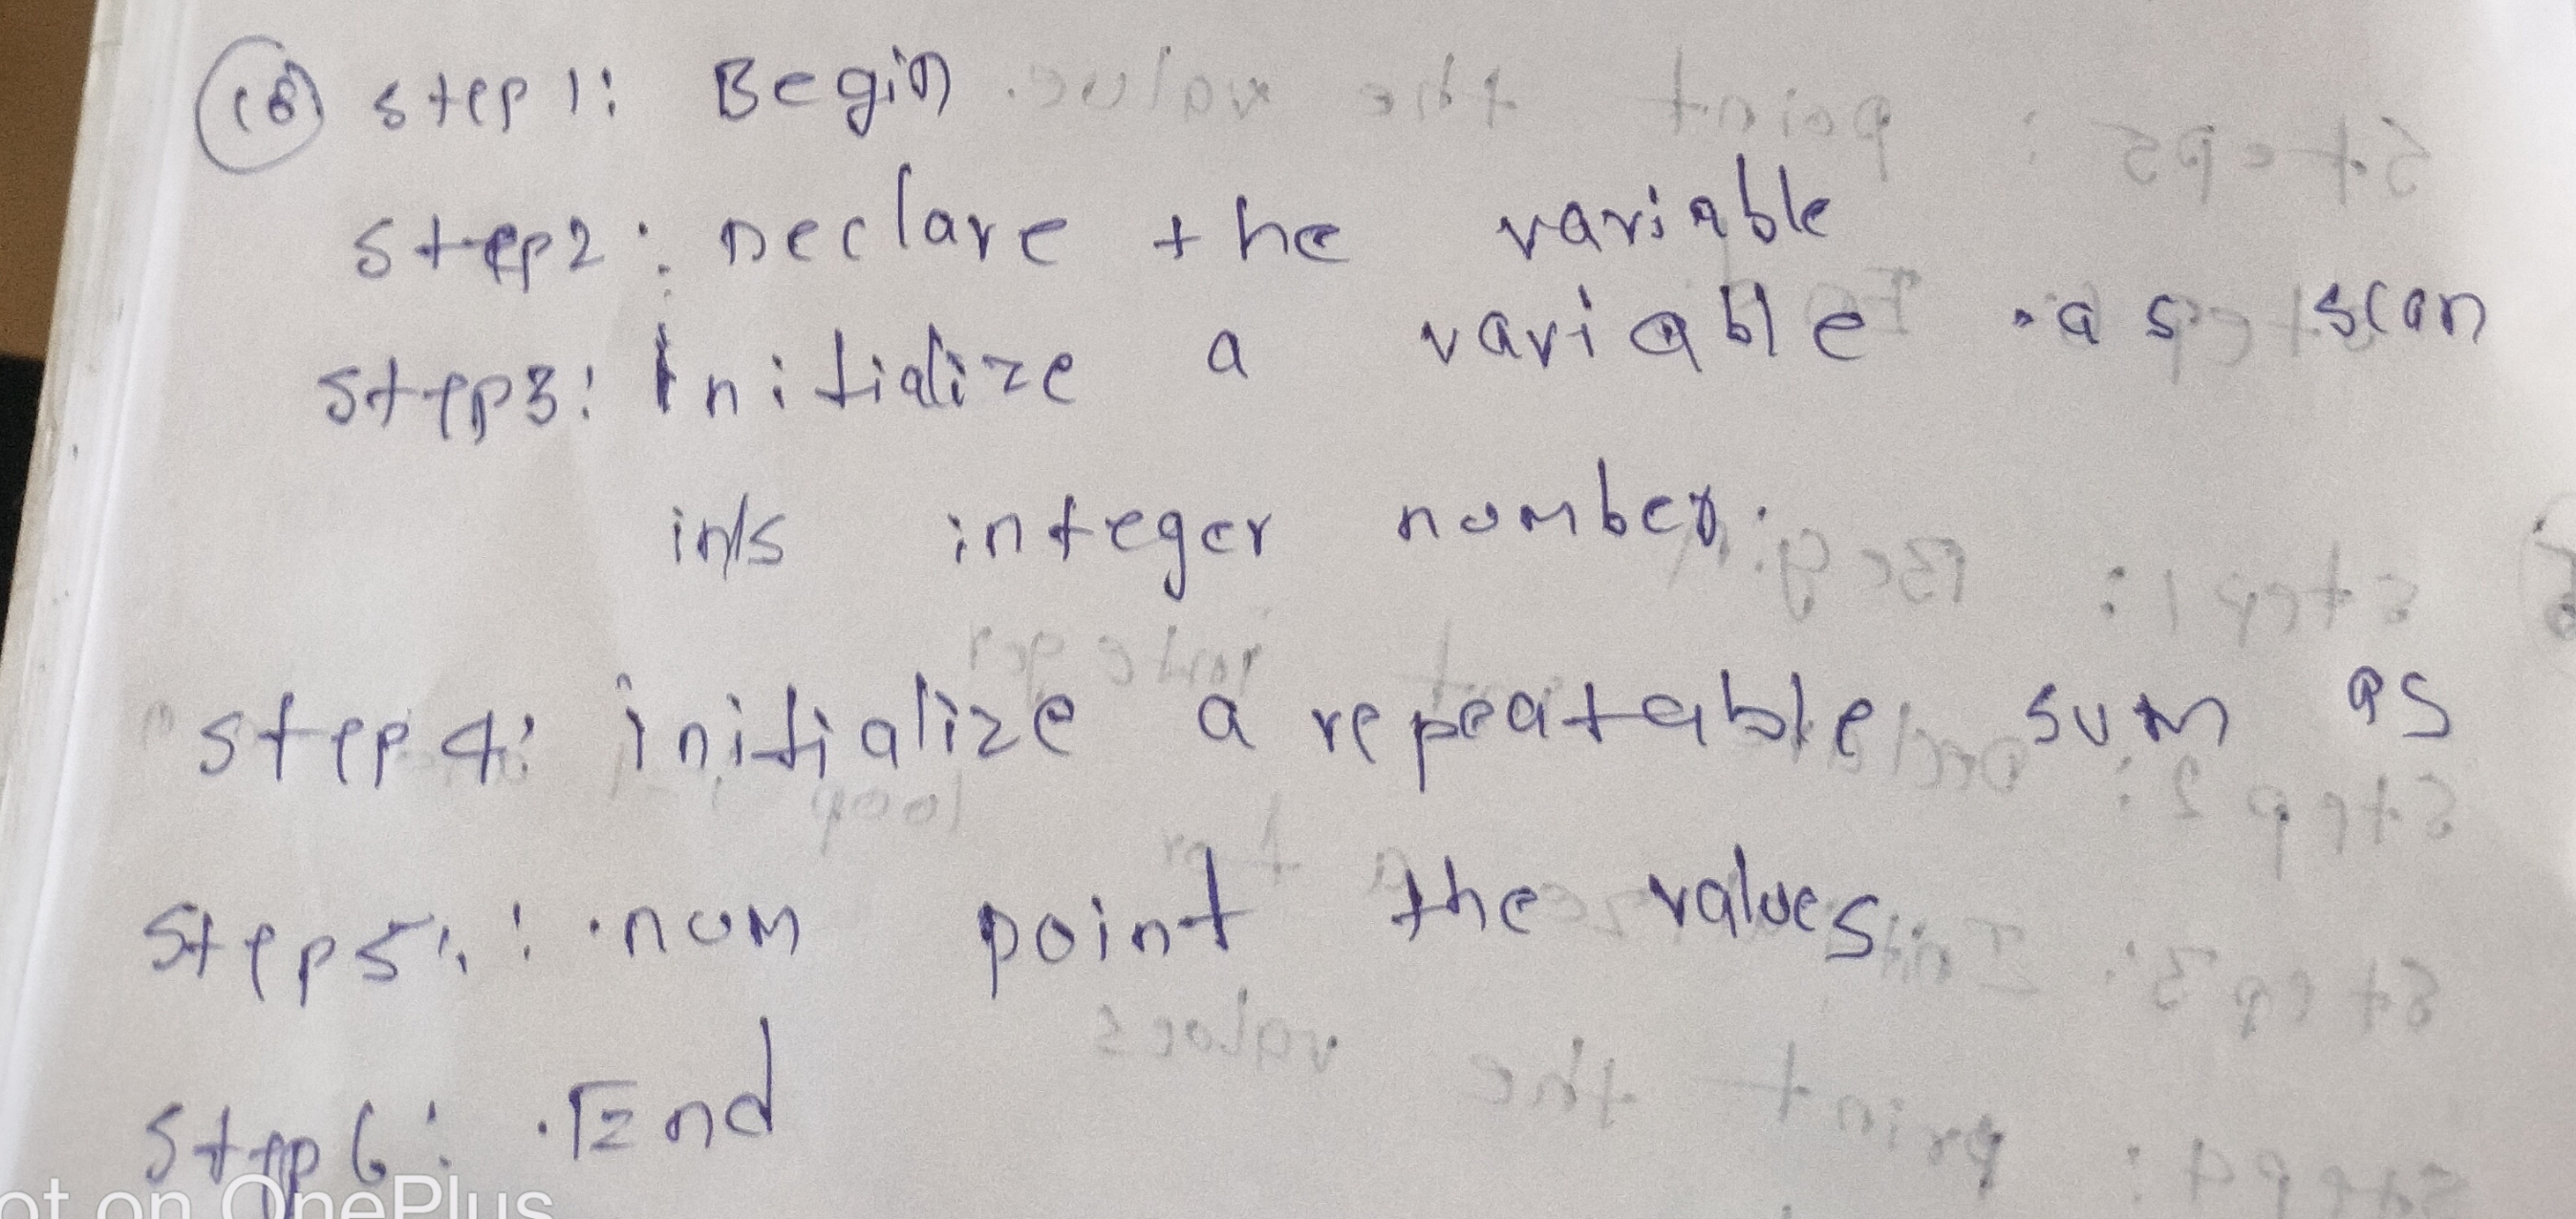 (18) Step1: Begin
Step2: Declare the variable
Step3: Initialize a variable as scan
integer number.
Step4: initialize a repeatable sum as
Step5: num point the values.
Step6: End
ot on OnePlus